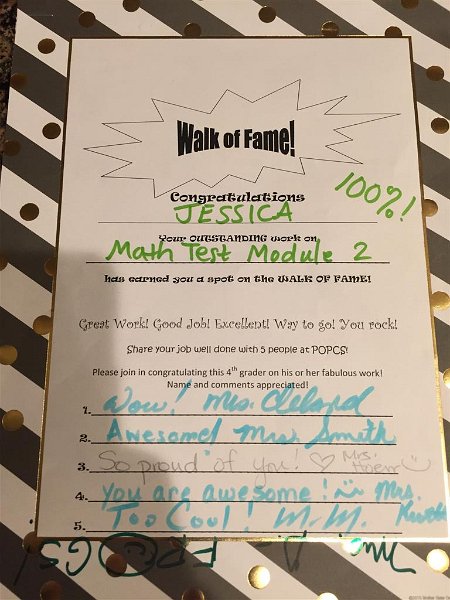 Walk of Fame!
Congratulations
JESSICA
100%!
Your OUTSTANDING work on
Math Test Module 2
has earned you a spot on the WALK OF FAME!
Great Work! Good Job! Excellent! Way to go! You rock!
Share your job well done with 5 people at POPCS!
Please join in congratulating this 4th grader on his or her fabulous work!
Name and comments appreciated!
1. Wow! Mrs. Cleland
2. Awesome! Mrs. Smith
3. So proud of you! ♡ Mrs.
4. you are awesome! Mrs.
5. Too Cool! M.M.